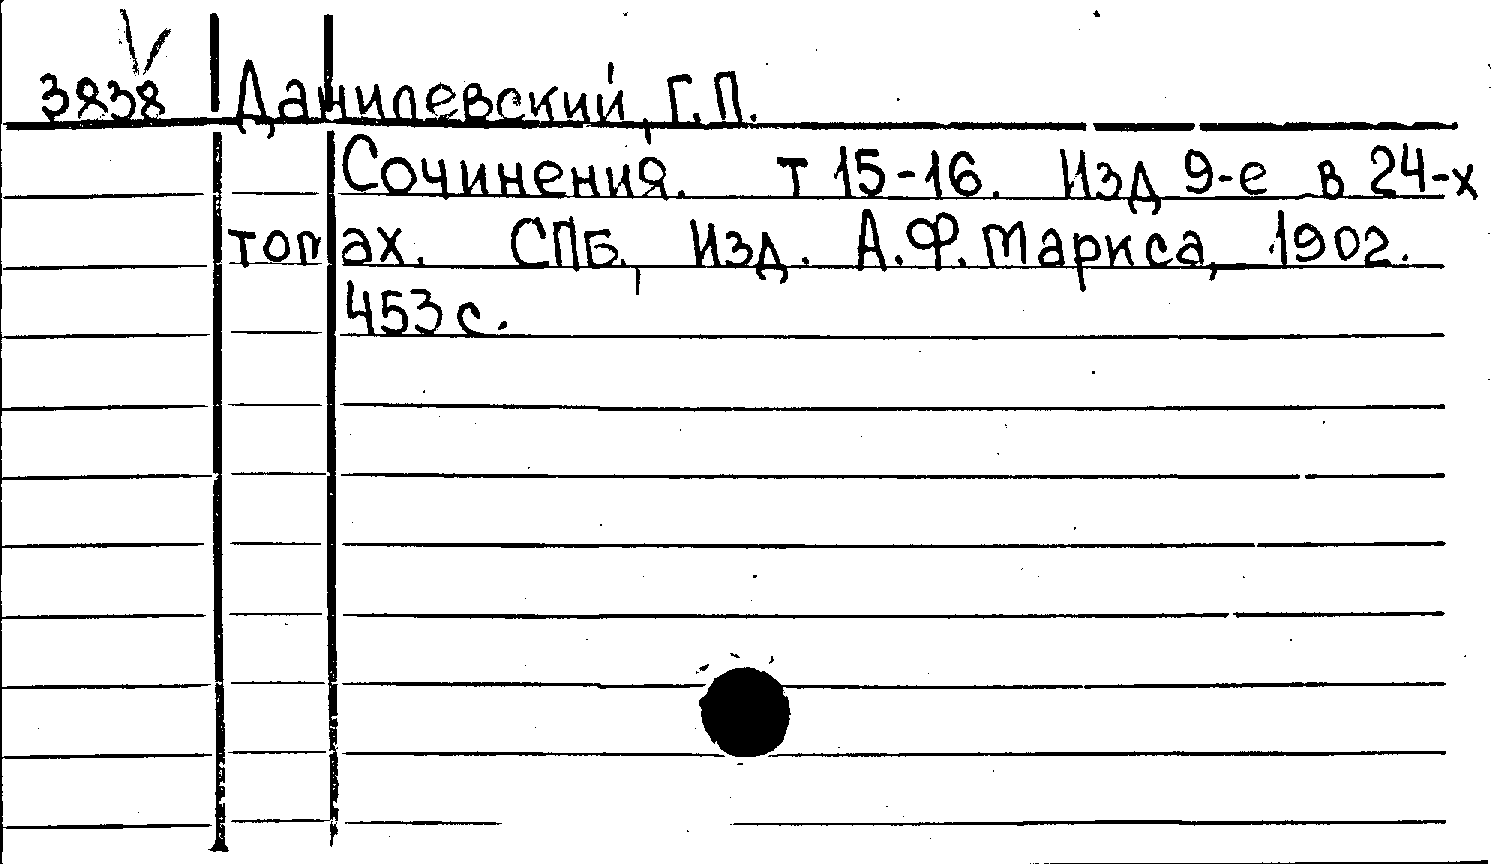 3838 Данилевский, Г.П.
Сочинения. т 15-16. Изд 9-е в 24-х
томах. СПБ, Изд. А.Ф. Маркса, 1902.
453 с.